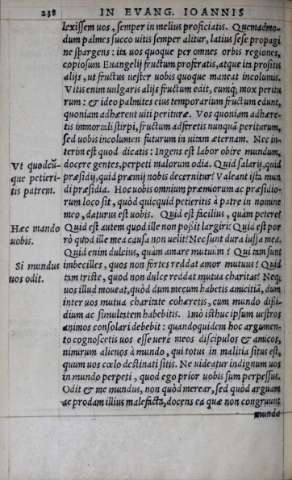 238 IN EVANG. IOANNIS
lexissem uos, semper in melius proficiatis. Quemadmo-
dum palmes succo uitis semper alitur, latius sese propagi
ne spargens: ita uos quoque per omnes orbis regiones,
copiosum Euangelij fructum proferatis, atque ita prositis
alijs, ut fructus uester uobis quoque maneat incolumis.
Vitis enim uulgaris alijs fructum edit, eumq́; mox peritu
rum: & ideo palmites eius temporarium fructum edunt,
quoniam adhærent uiti perituræ. Vos quoniam adhære-
tis immortali stirpi, fructum adferetis nunquā periturum,
sed uobis incolumem futurum in uitam æternam. Nec in-
terim est quod dicatis: Ingens est labor obire mundum,
Vt quodcū-
que petieri-
tis patrem.
docere gentes, perpeti malorum odia. Quid salarij, quid
præsidij, quid præmij nobis decernitur? Valeant ista mun
di præsidia. Hoc uobis omnium præmiorum ac præsidio-
rum loco sit, quòd quicquid petieritis à patre in nomine
meo, daturus est uobis. Quid est facilius, quàm petere?
Hæc mando
uobis.
Quid est autem quod ille non possit largiri: Quid est por
rò quod ille mea causa non uelit? Nec sunt dura iussa mea.
Quid enim dulcius, quàm amare mutuum? Qui iam sunt
Si mundus
uos odit.
imbecilles, quos non fortes reddat amor mutuus? Quid
tam triste, quod non dulce reddat mutua charitas? Neq́;
uos illud moueat, quòd dum mecum habetis amicitiā, dum
inter uos mutua charitate cohæretis, cum mundo dissi-
dium ac simultatem habebitis. Imò isthuc ipsum uestros
animos consolari debebit: quandoquidem hoc argumen-
to cognoscetis uos esse uerè meos discipulos & amicos,
nimirum alienos à mundo, qui totus in malitia situs est,
quum uos cœlo destinati sitis. Ne uideatur indignum uos
in mundo perpeti, quod ego prior uobis sum perpessus.
Odit & me mundus, non quòd merear, sed quòd arguam
ac prodam illius malefacta, docens ea quæ non congruunt
mundo